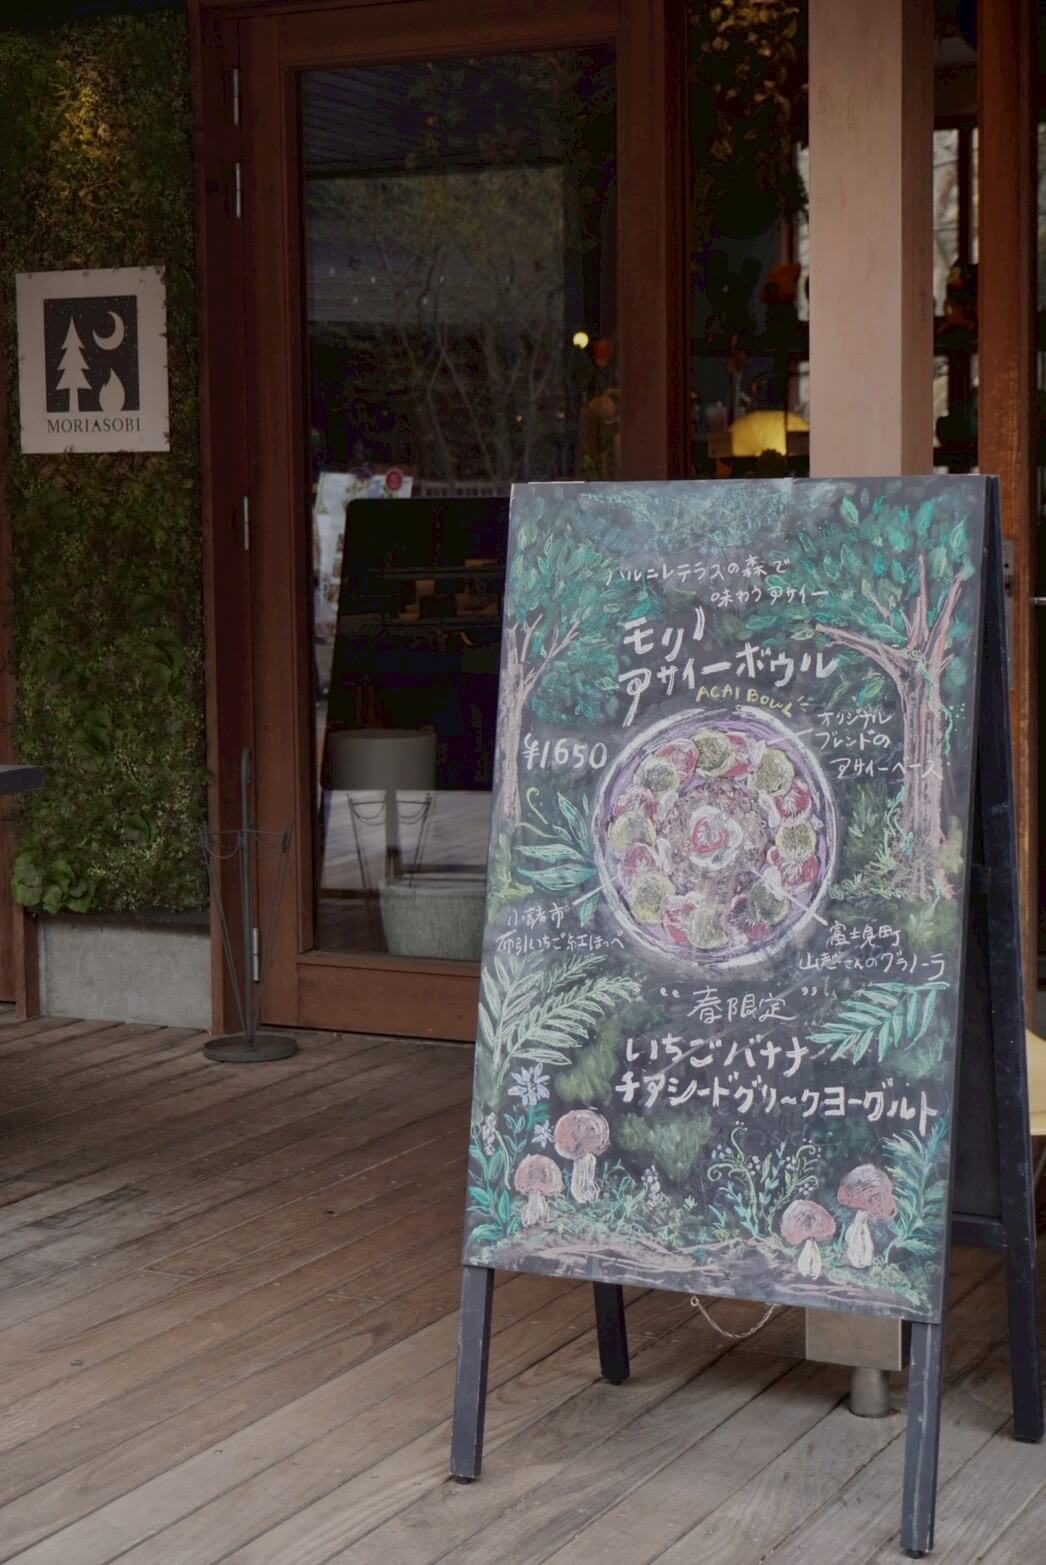 MORIASOBI
ハルニレテラスの森で
味わうアサイー
モリノ
アサイーボウル
ACAI BOWL
¥1650
オリジナル
ブレンドの
アサイーベース
小諸市
いちご紅ほっぺ
富士見町
山越さんのグラノーラ
"春限定"
いちごバナナ
チアシードグリークヨーグルト